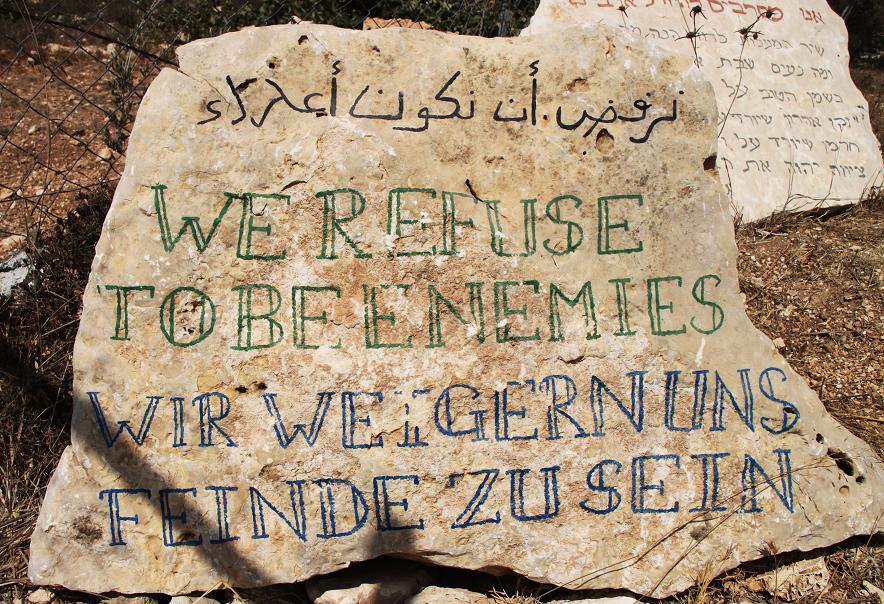 نرفض أن نكون أعداء
WE REFUSE
TO BE ENEMIES
WIR WEIGERN UNS
FEINDE ZU SEIN
אנו מסרבים להיות אויבים
שיר המעלות
ומה נעים שבת
כשמן הטוב על
זקן אהרון
חרמן שיורד על
ציווה יהוה את